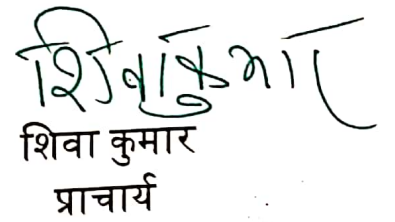 शिवा कुमार
शिवा कुमार
प्राचार्य